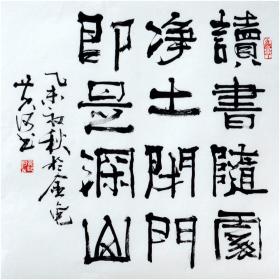 讀書隨處
净土閉門
即是深山
乙未秋於金
书